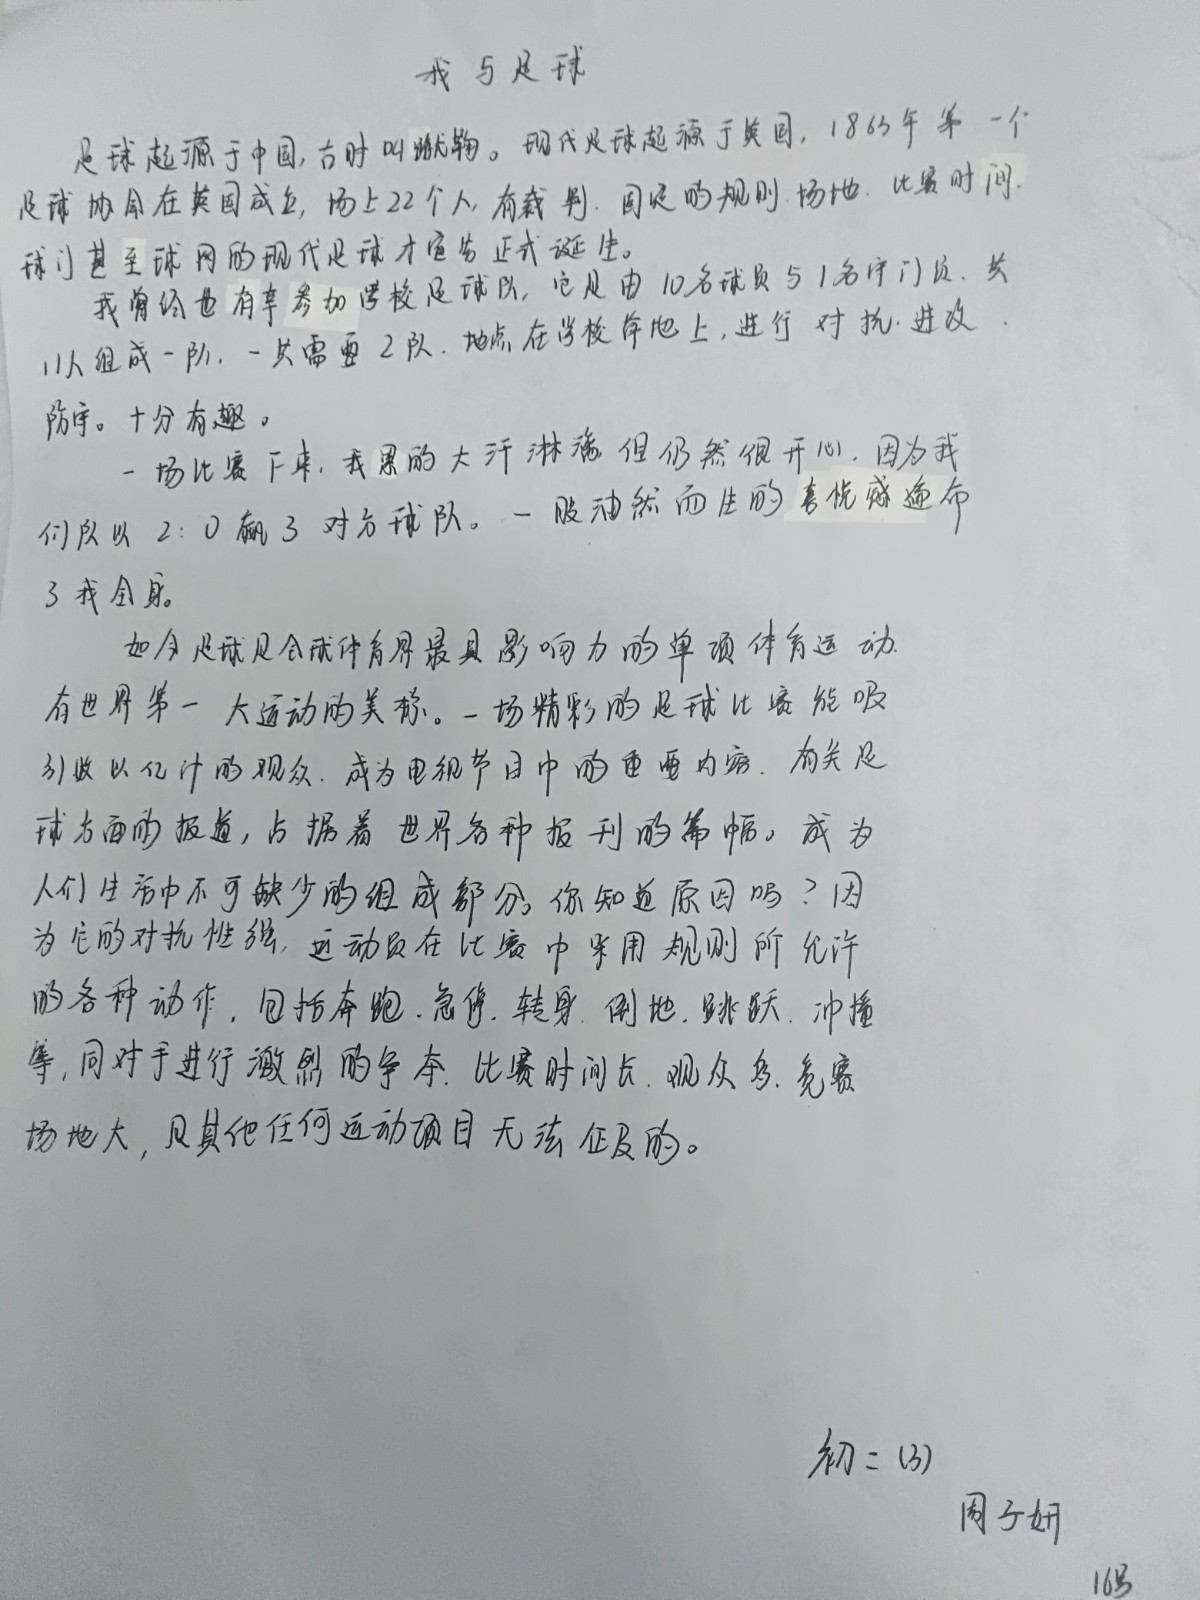 我与足球
足球起源于中国,古时叫蹴鞠。现代足球起源于英国,1863年第一个
足球协会在英国成立,场上22个人,有裁判、固定的规则、场地、比赛时间、
球门甚至球网的现代足球才宣告正式诞生。
我曾经也有幸参加学校足球队,它是由10名球员与1名守门员、共
11人组成一队,一共需要2队,地点在学校草地上,进行对抗、进攻、
防守。十分有趣。
一场比赛下来,我累的大汗淋漓但仍然很开心,因为我
们队以2:0赢了对方球队。一股油然而生的喜悦感遍布
了我全身。
如今足球是全球体育界最具影响力的单项体育运动,
有世界第一大运动的美称。一场精彩的足球比赛能吸
引数以亿计的观众,成为电视节目中的重要内容,有关足
球方面的报道,占据着世界各种报刊的篇幅。成为
人们生活中不可缺少的组成部分。你知道原因吗?因
为它的对抗性强,运动员在比赛中采用规则所允许
的各种动作,包括奔跑、急停、转身、倒地、跳跃、冲撞
等,同对手进行激烈的争夺,比赛时间长、观众多、竞赛
场地大,是其他任何运动项目无法企及的。
初二(3)
周子妍
16号